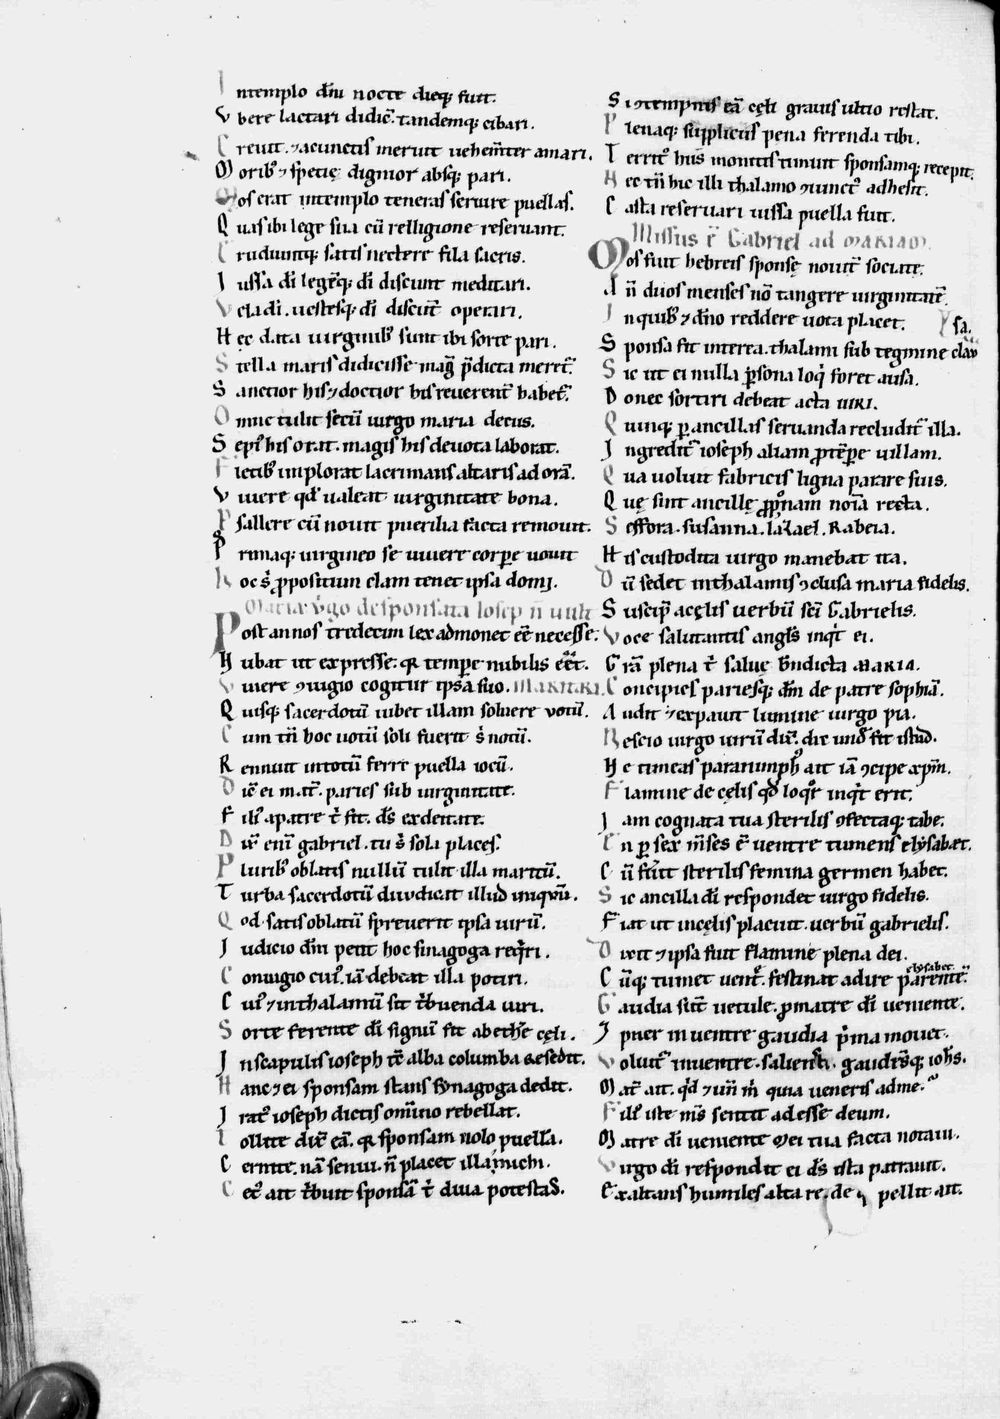 I n templo dñi nocte dieq; fuit.
V bere lactari didic̃. tandemq; cibari.
C reuit. ⁊ a cunctis meruit uehem̃ter amari.
M orib; ⁊ specie dignior absq; pari.
M os erat in templo teneras seruire puellas.
Q uas ibi lege sua cũ relligione reseruant.
E rudiuntq; satis nectere fila sacris.
I ussa di legẽq; di discunt meditari.
V ela di. uestesq; di discũt operari.
H ec data uirginib; sunt ibi sorte pari.
S tella maris didicisse mag p̃dicta meret̃.
S anctior his ⁊ doctior his reuerent̃ habet̃.
O mne tulit secũ uirgo maria decus.
S epi his orat. magis his deuota laborat.
F letib; implorat lacrimans altaris ad orã.
V iuere qd ualeat uirginitate bona.
P sallere cũ nouit puerilia facta remouit.
P rimaq; uirgineo se uiuere corpe uouit
H oc s; propositum clam tenet ipsa domi.
Maria v̾go desponsata Iosep ñ uult
P ost annos tredecim lex admonet eẽ necesse.
H ubat ut expresse. qr tempe nubilis eẽt.
V iuere ↄiugio cogitur ipsa suo. MARITARI.
Q uisq; sacerdotũ iubet illam soluere uotũ.
C um tñ hoc uotũ soli fuerit s; notũ.
R ennuit in totũ ferre puella iocũ.
D ic̃ ei mat̃. paries sub uirginitate.
F ili; a patre t̾ fit. ds̃ ex deitate.
D ix̃ eni gabriel. tu s; sola places.
P lurib; oblatis nullũ tulit illa maritũ.
T urba sacerdotũ diiudicat illud iniquũ.
Q od satis oblatũ spreuerit ipsa uirũ.
I udicio dñi petit hoc sinagoga req̾ri.
C oniugio cui; iã debeat illa potiri.
C ui; ⁊ in thalamũ sit tͥbuenda uiri.
S orte ferente di signũ fit ab ethe cęli.
I n scapulis ioseph t̃c alba columba resedit.
H anc ⁊ ei sponsam stans synagoga dedit.
I rat; ioseph dictis omnino rebellat.
T ollite dix̃ eã. qr sponsam nolo puellã.
C ernite. nã senui. ñ placet illa michi.
C et; ait tͥbuit sponsã t̾ diua potestas.
S i ↄtempnis eã cęli grauis ultio restat.
P lenaq; suppliciis pena ferenda tibi.
T errit; his monitis timuit sponsamq; recepit.
H ec tñ hic illi thalamo ⁊iunct; adhesit.
C asta reseruari iussa puella fuit.
Missus ẽ Gabriel ad MARIAM.
M os fuit hebreis sponsę nouit̃ sociate.
A ñ duos menses nõ tangere uirginitatẽ.
I n quib; ⁊ dño reddere uota placet.
S ponsa fit interea. thalami sub tegmine clau
sa.
S ic ut ei nulla psona loq̾ foret ausa.
D onec sortiri debeat acta uiri.
Q uinq; p ancillas seruanda recludit̃ illa.
I ngredit̃ ioseph aliam p tẽpe uillam.
Q ua uoluit fabricis ligna parare suis.
Q uę sint ancillę ppnam noia recta.
S effora. susanna. Iazael. Rabeia.
H is custodita uirgo manebat ita.
D ũ sedet in thalamis ↄclusa maria fidelis.
S uscip̃ a cęlis uerbũ sci Gabrielis.
V oce salutantis angls̃ inqt ei.
G rã plena t̾ salue bndicta MARIA.
C oncipies pariesq; dm de patre sophiã.
A udit ⁊ expauit lumine uirgo pia.
N escio uirgo uirũ dix̃. dic und; fit istud.
N e timeas paranimph ait iã ↄcipe xp̃m.
F lamine de cęlis qd loqr inqt erit.
I am cognata tua sterilis ↄfectaq; tabe.
E n p sex m̃ses ẽ uentre tumens elysabæt.
C ũ fu̾it sterilis femina germen habet.
S ic ancilla di respondet uirgo fidelis.
F iat ut in cęlis placuit uerbũ gabrielis.
D ixit ⁊ ipsa fuit flamine plena dei.
C ũq; tumet uent̾. festinat adire parentẽ. elysabet.
G audia sũt uetule. p matre di ueniente.
I puer in uentre gaudia p̾ma mouet.
V oluit̃ in uentre. salient. gaudisq; iohs̃.
M at̃ ait. qd ⁊ uñ m̾ quia ueneris ad me.
F ili; iste m̃s sentit adesse deum.
M atre di ueniente mei tua facta notaui.
V irgo di respondit ei ds̃ ista patrauit.
E xaltans humiles alta re. de pellit ait.